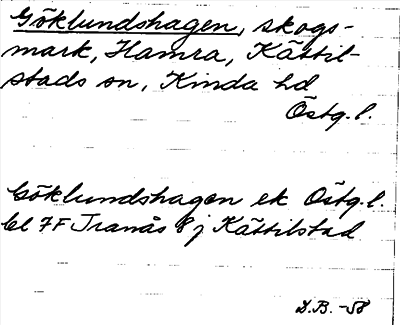 Göklundshagen, skogs-
mark, Hamra, Kättil-
stads sn, Kinda hd
Östg. l.
Göklundshagen ek Östg. l.
bl 7F Tranås 8 j Kättilstad
D.B. -58